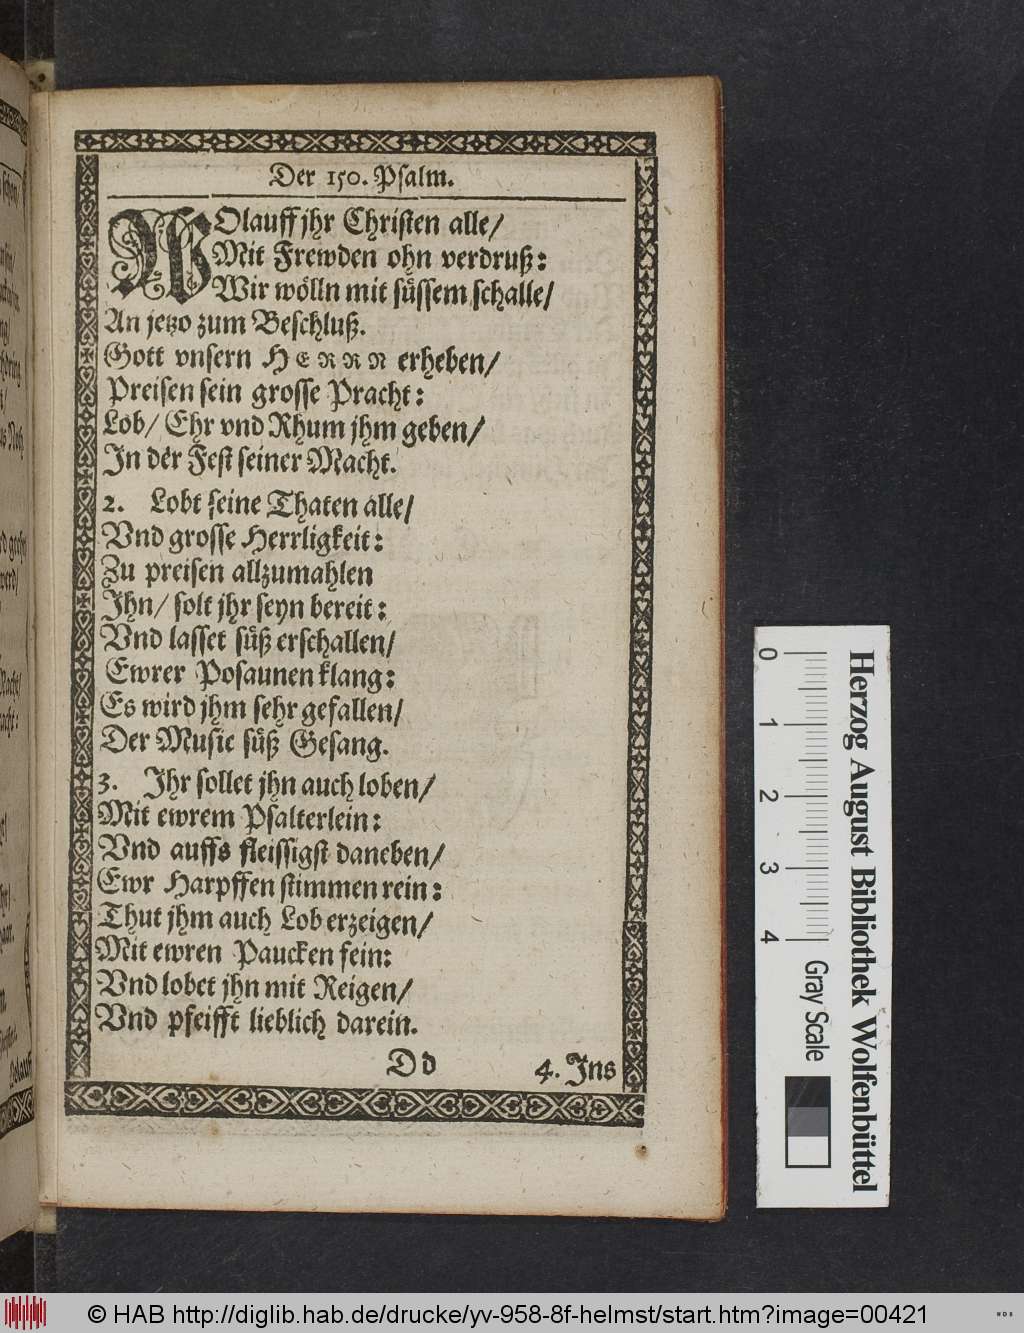 Der 150. Psalm.
WOlauff jhr Christen alle/
Mit Frewden ohn verdruß:
Wir wölln mit süssem schalle/
An jetzo zum Beschluß.
Gott vnsern HERRN erheben/
Preisen sein grosse Pracht:
Lob/ Ehr vnd Rhum jhm geben/
In der Fest seiner Macht.
2. Lobt seine Thaten alle/
Vnd grosse Herrligkeit:
Zu preisen allzumahlen
Ihn/ solt jhr seyn bereit:
Vnd lasset süß erschallen/
Ewrer Posaunen klang:
Es wird jhm sehr gefallen/
Der Music süß Gesang.
3. Ihr sollet jhn auch loben/
Mit ewrem Psalterlein:
Vnd auffs fleissigst daneben/
Ewr Harpffen stimmen rein:
Thut jhm auch Lob erzeigen/
Mit ewren Paucken fein:
Vnd lobet jhn mit Reigen/
Vnd pfeifft lieblich darein.
Dd 4. Ins
0 1 2 3 4
Gray Scale
Herzog August Bibliothek Wolfenbüttel
© HAB http://diglib.hab.de/drucke/yv-958-8f-helmst/start.htm?image=00421